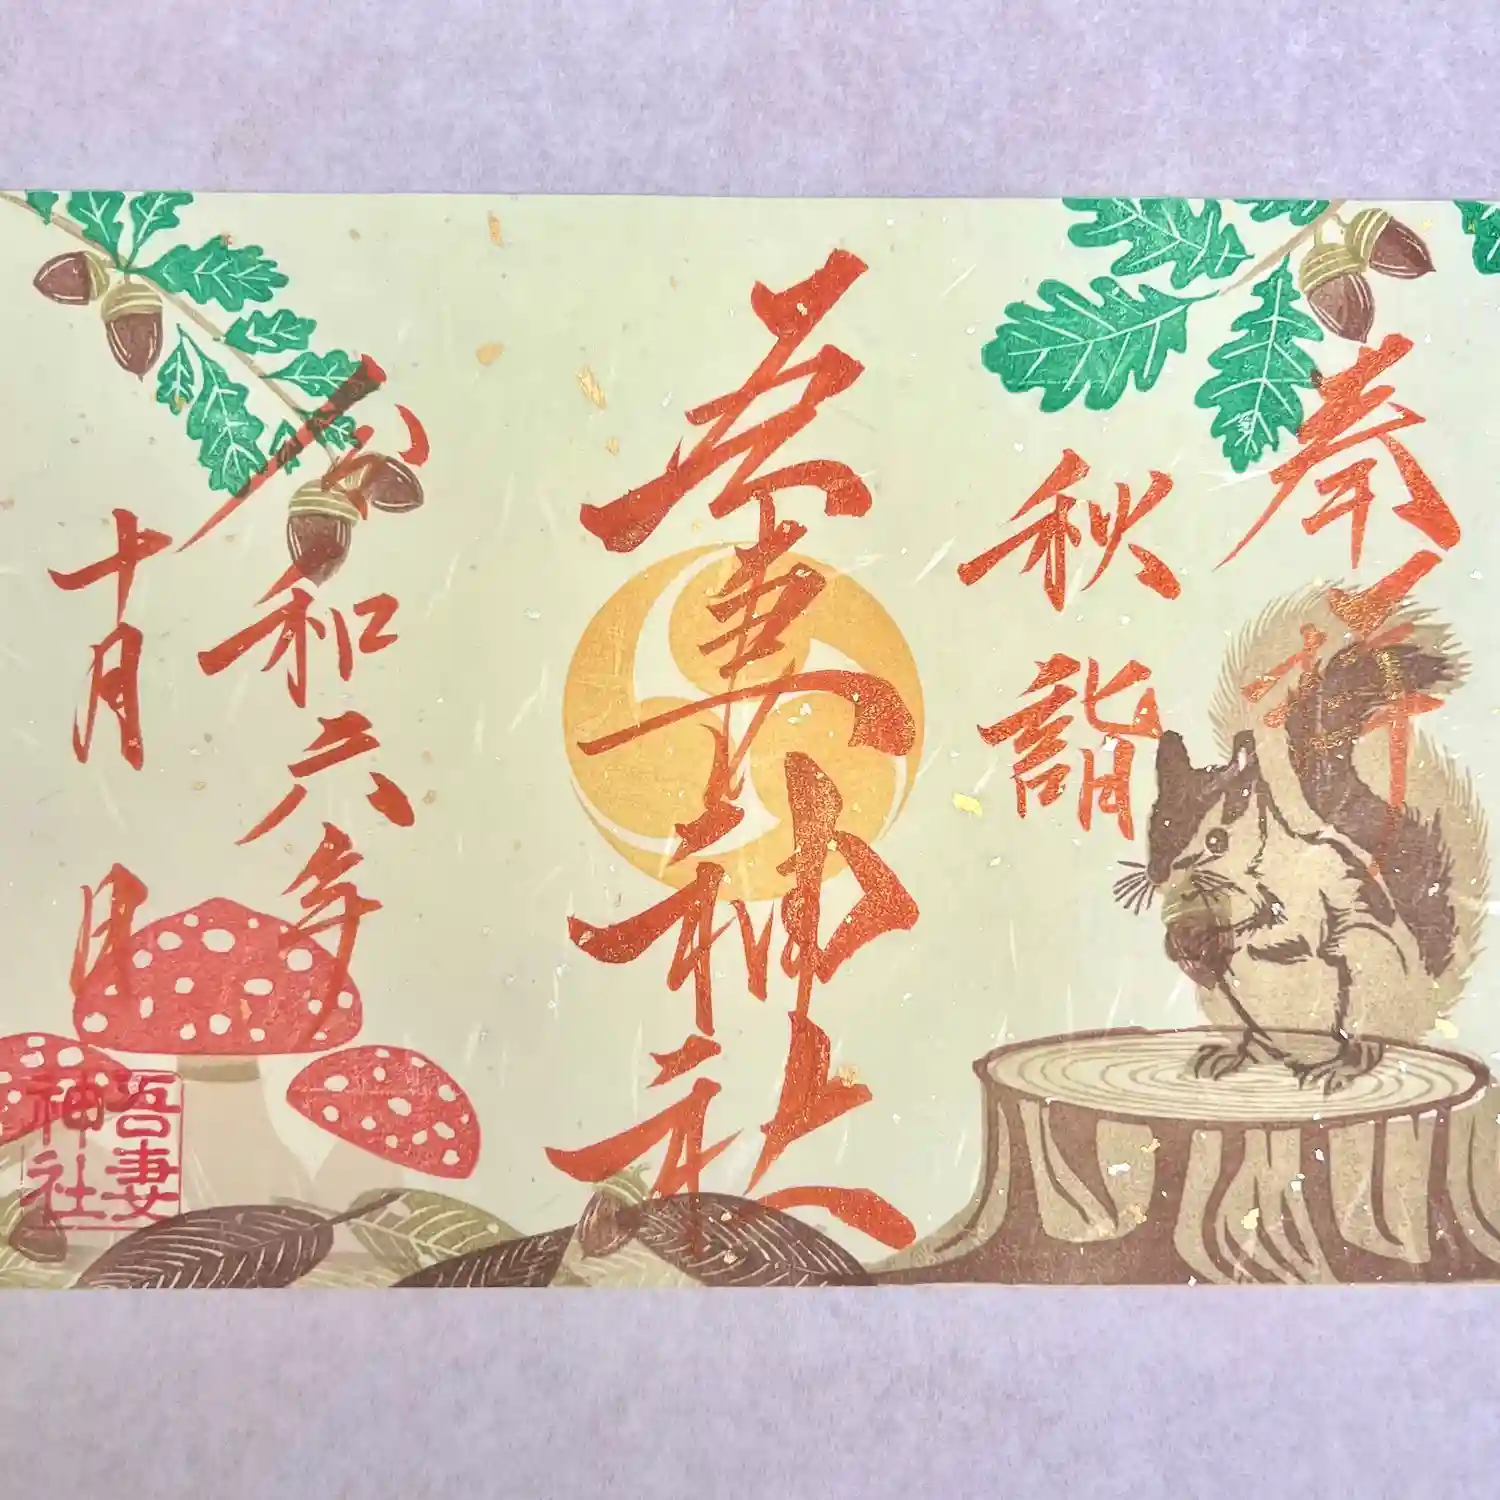 奉拝
秋詣
吾妻神社
令和六年
十月　日
吾妻
神社